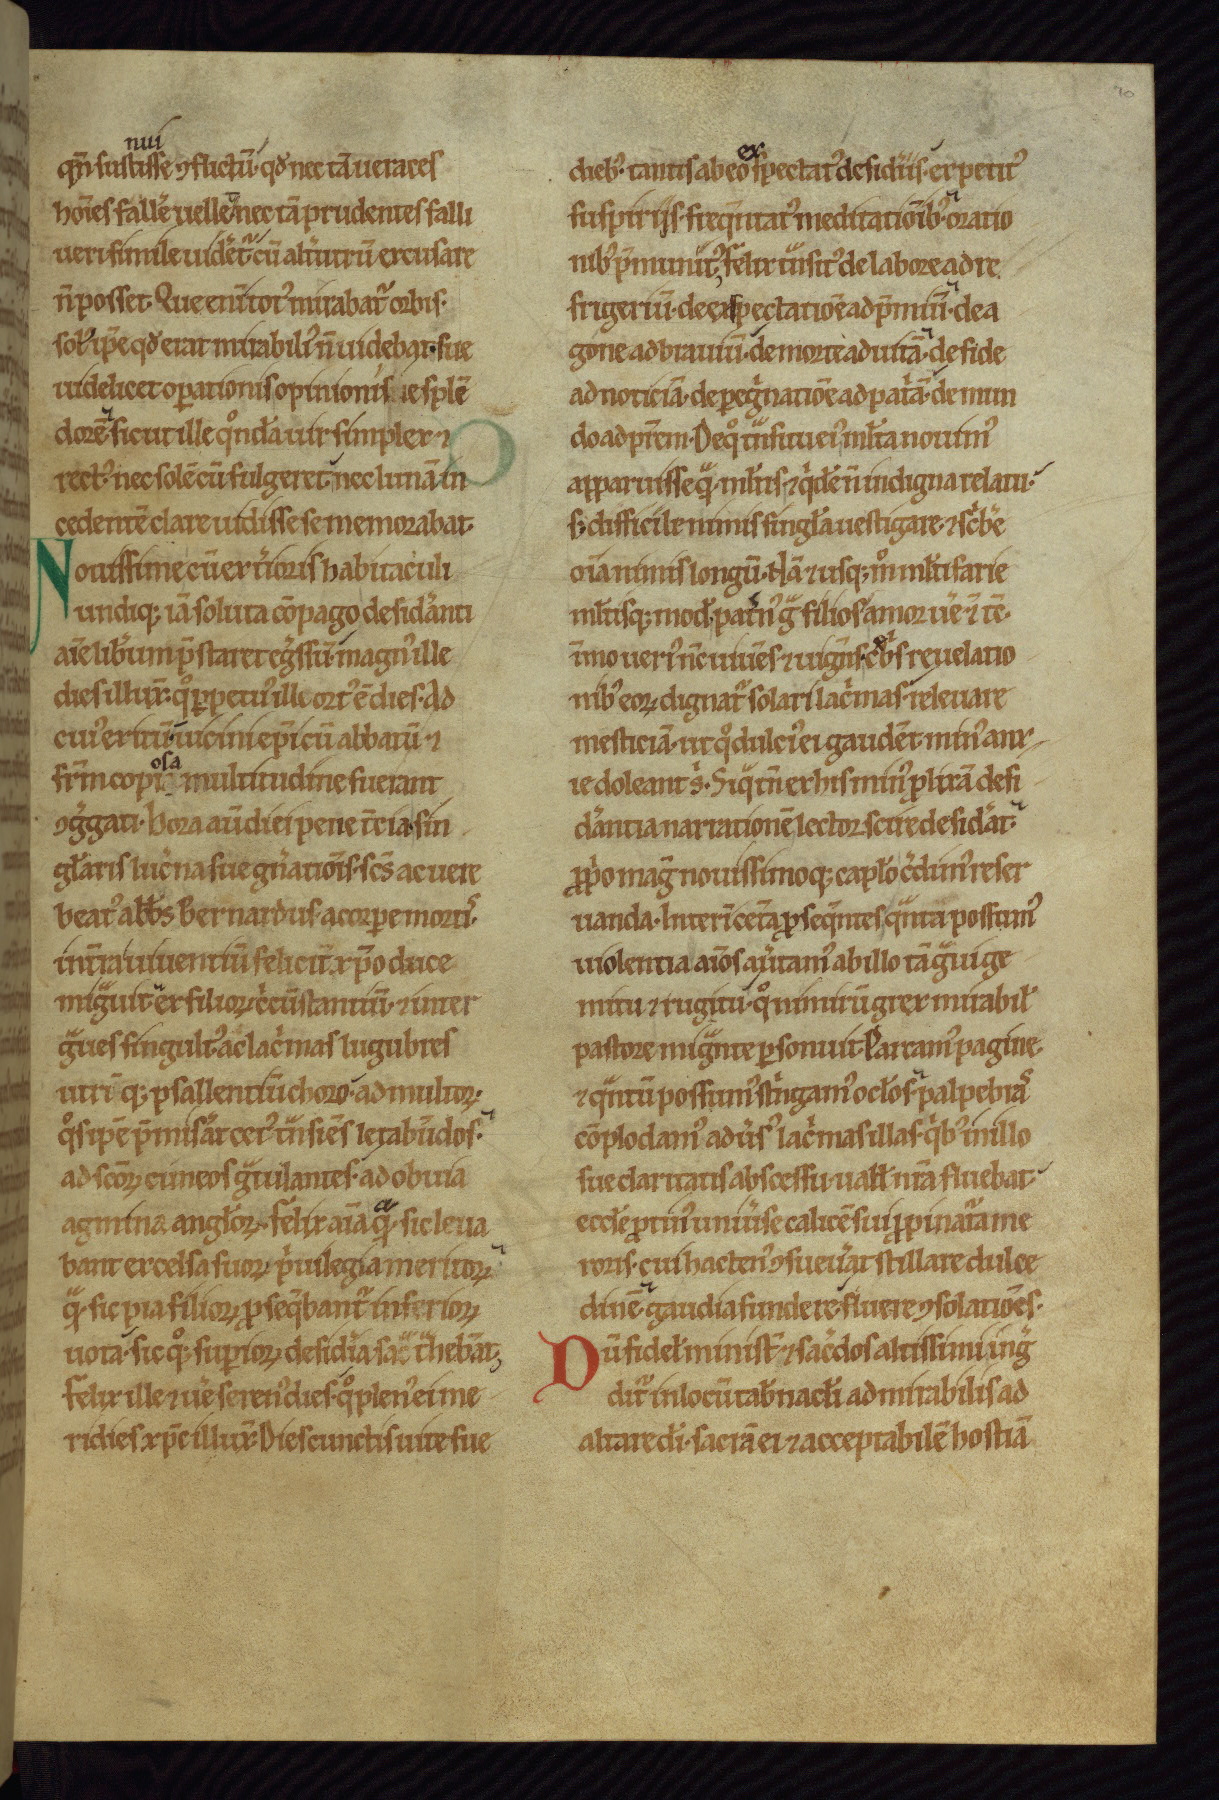 70
nui
qn̄ sustisse ꝯflictū· qd̄ nec tā ueraces
hoīes fallē uelle· nec tā prudentes falli
uerisimile uidēt᷑ cū alt̄utrū excusare
n̄ posset· Que enī tot᷒ mirabat᷑ orbis·
sol᷒ ip̄e qd̄ erat mirabilit᷒ n̄ uidebat· sue
uidelicet oꝑationis opinionis ie splē
dorē· sicut ille qͦndā uir simplex ⁊
rect᷒ nec solē cū fulgeret· nec lunā in
cedentē clare uidisse se memorabat·
Nouissime cū ext̄ioris habitaculi
undiq; iā soluta cōpago desid̓anti
aīe lib̓um p̄staret eg̓ssū· magn᷒ ille
dies illux̄· qͦ ꝑpetu᷒ ill ort᷒ ē dies· Ad
cui᷒ exitū uicini ep̄i cū abbatū ⁊
osa
fr̄m copi multitudine fuerant
ꝯg̓gati· Hora aūt diei pene t̄cia· sin
gl̄aris luc̓na sue gn̓atiōis· sc̄s ac uere
beat᷒ abb̄s Bernardus· a corꝑe morti᷒·
in t̄ra uiuentiū felicit̓ xp̄o duce
migͣuit· ex filioꝝ c̓cūstantiū· ⁊ inter
gͣues singult᷒ ac lac̓mas lugubres
utrīq; psallentiū choro· ad multoꝝ
qͦs ipē p̄mis̓at cet᷒ tͣnsiēs letabūdos·
ad scōꝝ cuneos gͣtulantes· ad obuia
agmina angl̄oꝝ· Felix aīa qͣ sic leua
bant excelsa suoꝝ p̓uilegia meritoꝝ
qͣ sic pia filioꝝ ꝓseq̄bant᷑ inferioꝝ
uota· sicq; suꝑioꝝ desid̓ia sac tͣhebāt·
Felix ille ⁊ uē seren᷒ dies· qͦ plen᷒ ei me
ridies xp̄c illux̄· Dies cunctis uite sue
dieb᷒· tantis ab eo exspectat᷒ desid̓iis· expetit᷒
suspiriis· freq̄ntat᷒ meditatiōib᷒· oratio
nib᷒ p̄munit᷒· Felix tͣnsit᷒ de labore ad re
frigeriū· de exspectatiōe ad p̄miū· de a
gone ad brauiū· de morte ad uitā· de fide
ad noticiā· de ꝑeg̓natiōe ad pat̓ā· de mun
do ad pr̄em· De qͦ tͣnsitu ei᷒ ml̄ta nouim᷒
apparuisse qͣ ml̄tis· ⁊ q̓dē n̄ indigna relatu·
s; difficile nimis singl̄a uestigare· ⁊ sc̓bē
oīa nimis longū· Nā ⁊ usq; mͦ ml̄tifarie
ml̄tisq; mod̄· pat̓n᷒ gͣ filios amor uē· ⁊ tē·
īmo ueri᷒ nc̄ uiuēs ⁊ uigēs· crebs reuelatio
nib᷒ eoꝝ dignat᷑ solari lac̓mas· releuare
mesticiā· ut qͦ dulci᷒ ei gaudēt· min᷒ anx
ie doleant s̓· Siqͣ tn̄ ex his min᷒ ꝑ litt̄ā desi
d̓antia narrationē lector scire desid̓at·
ꝓp̓o magͣ nouissimoq; capl̄o c̓dim᷒ reser
uanda· Interī cet̄a ꝓseq̄ntes qͣntū possum᷒
uiolentia aīos au̓tam᷒ ab illo tā gͣui ge
mitu ⁊ rugitu· qͦ nimirū grex mirabilit̄
pastore migͣnte ꝑsonuit· Parcam᷒ pagine·
⁊ qͣntū possum᷒ st̓ngam᷒ ocl̄os· palpebras
cōplodam᷒ adūs᷒ lac̓mas illas· q̓b᷒ in illo
sue claritatis abscessu· uall̄ nr̄a fluebat·
eccl̄e ꝓtin᷒ uniūse calicē sui ꝓpinatͣ me
roris· cui hacten᷒ ꝯsueu̓at stillare dulce
dinē· gaudia fundere· fluere ꝯsolatiōes·
Dū fidel̄ minist̄ ⁊ sac̓dos altissimi ing̓
dit᷑ in locū tab̓nacl̄i admirabilis ad
altare dī· sacrā ei ⁊ acceptabilē hostiā